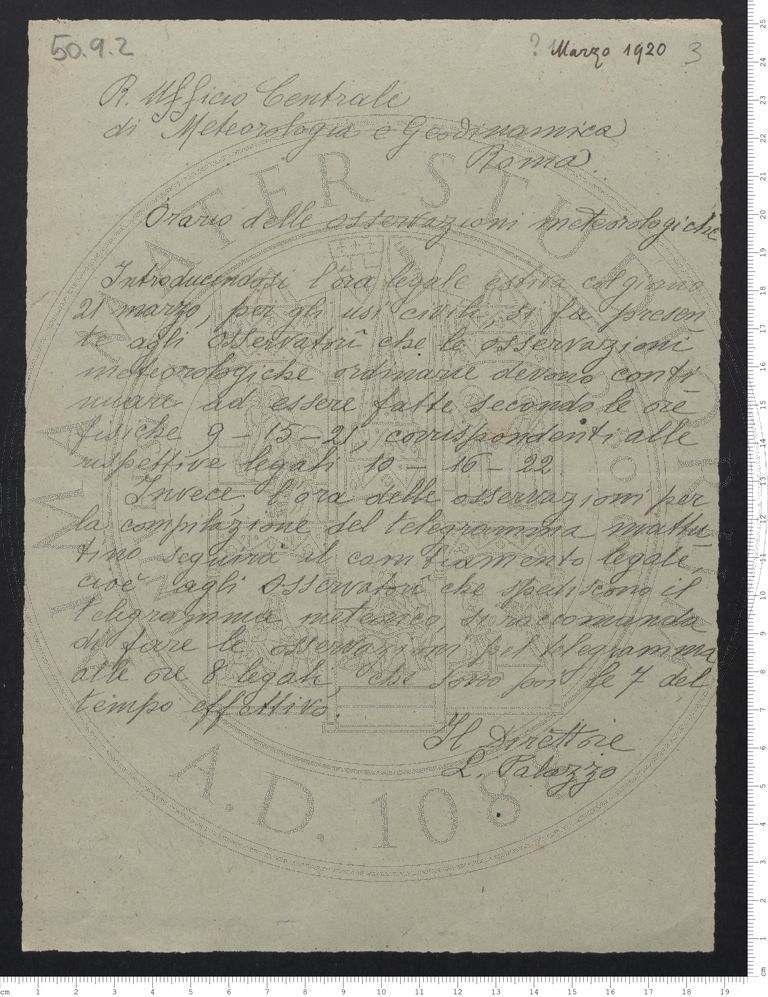 50.9.2
? Marzo 1920 3
R. Ufficio Centrale
di Meteorologia e Geodinamica
Roma
Orario delle osservazioni meteorologiche
Introducendosi l'ora legale estiva col giorno
21 marzo, per gli usi civili, si fa presen
te agli Osservatorî che le osservazioni
meteorologiche ordinarie devono conti
nuare ad essere fatte secondo le ore
fisiche 9 – 15 – 21, corrispondenti alle
rispettive legali 10 – 16 – 22
Invece, l'ora delle osservazioni per
la compilazione del telegramma mattu
tino seguirà il cambiamento legale,
cioè agli Osservatorî che spediscono il
telegramma meteorico, si raccomanda
di fare le osservazioni pel telegramma
alle ore 8 legali, che sono poi le 7 del
tempo effettivo.
Il Direttore
L. Palazzo
ALMA MATER STUDIORUM
A.D. 1088